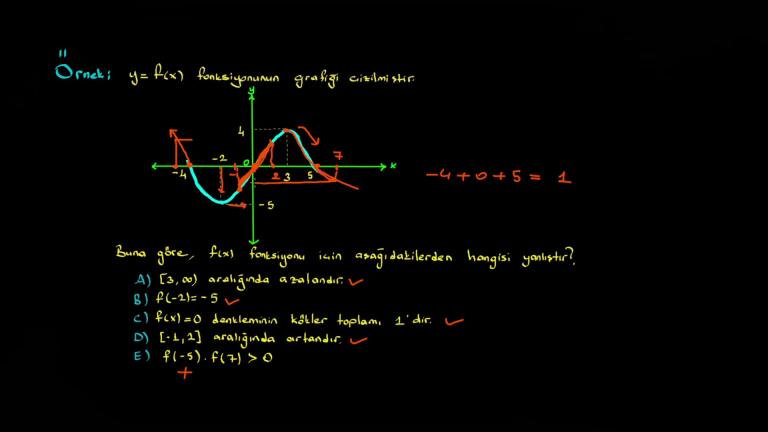 Örnek: y = f(x) fonksiyonunun grafiği çizilmiştir.
y
4
-2 0 7
-4 -1 2 3 5 x
-5
-4+0+5 = 1
Buna göre, f(x) fonksiyonu için aşağıdakilerden hangisi yanlıştır?
A) [3, ∞) aralığında azalandır. ✓
B) f(-2) = -5 ✓
C) f(x)=0 denkleminin kökler toplamı 1'dir. ✓
D) [-1, 2] aralığında artandır. ✓
E) f(-5) . f(7) > 0
+